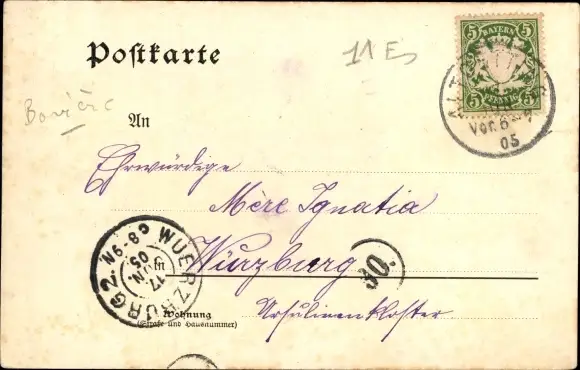 Postkarte
11 E
5 BAYERN 5
5 PFENNIG 5
VOR. 6
05
Bavière
An
Ehrwürdige
Mère Ignatia
in Wurzburg
WUERZBURG 2.
8-9 N.
17 JUN. 05
30.
Ursulinenkloster
Wohnung
(Straße und Hausnummer)